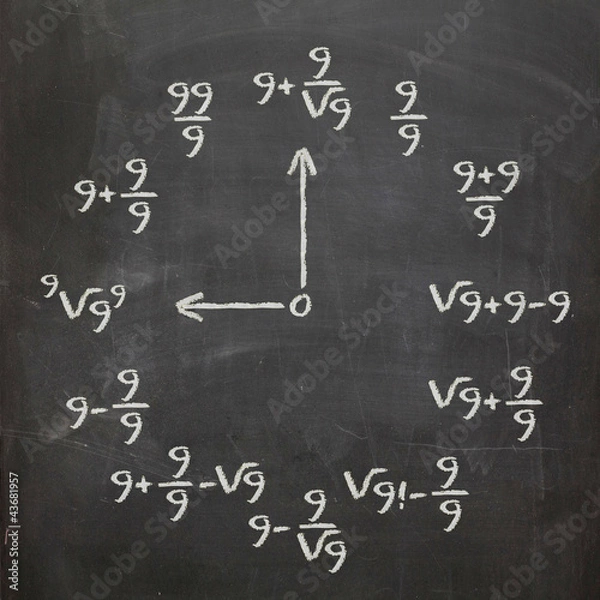 9 + 9/√9
9/9
(9+9)/9
√9 + 9 - 9
√9 + 9/9
√9! - 9/9
9 - 9/√9
9 + 9/9 - √9
9 - 9/9
⁹√9⁹
9 + 9/9
99/9
Adobe Stock | #43681957